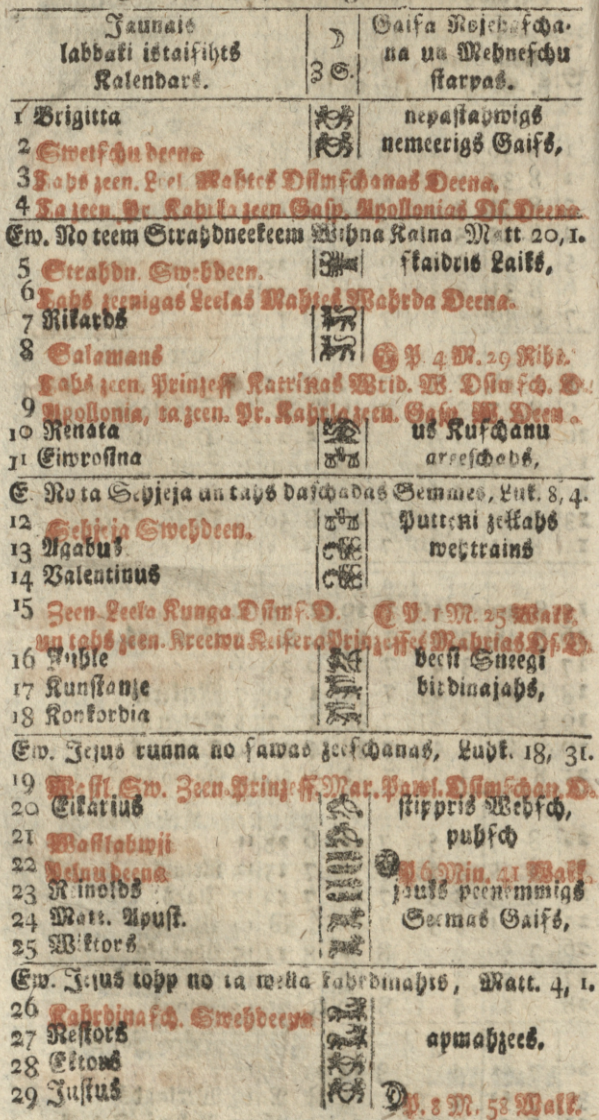 Jaunais
labbaki istaisihts
Kalendars.
3 G.
Gaisa
na un Mehneschu
starpas.
1 Brigitta nepastahwigs
2 Swetschu deena nemeerigs Gaiss,
3 Tahs zeen. Leel. Mahtes Dsimschanas Deena.
4 Ta zeen. Pr. Kahrla zeen. Gasp. Apollonias Ds. Deena.
Ew. No teem Strahdneekeem Wihna Kalna Matt 20, 1.
5 Strahdn. Swehdeen. skaidris Laiks,
6 Tahs zeenigas Leelas Mahtes Wahrda Deena.
7 Rikards
8 Salamans P. 4 M. 29 Rihz.
Tahs zeen. Prinzess Katrinas Wrid. W. Dsimsch. D.
9 Apollonia, ta zeen. Pr. Kahrla zeen. Gasp. W. Deen.
10 Renata us Kuschanu
11 Eiwrosina
E. No ta Sehjeja un tahs daschadas Semmes, Luk. 8, 4.
12 Sehjeja Swehdeen. Putteni zellahs
13 Agabus wehtrains
14 Valentinus
15 Zeen Leela Kunga Dsimf. D. P. 1 M. 25 Wakk.
un tahs zeen. Kreewu Keisera Prinzesses Mahrias Ds. D.
16 beest Sneegi
17 Kunstanze birdinajahs,
18 Konkordia
Ew. Jesus runna no sawas zeeschanas, Luhk. 18, 31.
19 Mastl. Sw. Zeen. Prinzess. Mar. Pawl. Dsimschan. D.
20 Eikarius stippris Wehsch,
21 Wastlahwji puhsch
22 Pelnu deena P. 6 Min. 41 Wakk.
23 Reinolds jauks peenemmigs
24 Matt. Apust. Seemas Gaiss,
25 Wiktors
Ew. Jesus tohp no ta wella kahrdinahts, Matt. 4, 1.
26 Kahrdinasch. Swehdeena
27 Nestors apmahzees.
28 Ektors
29 Justus P. 8 M. 58 Wakk.